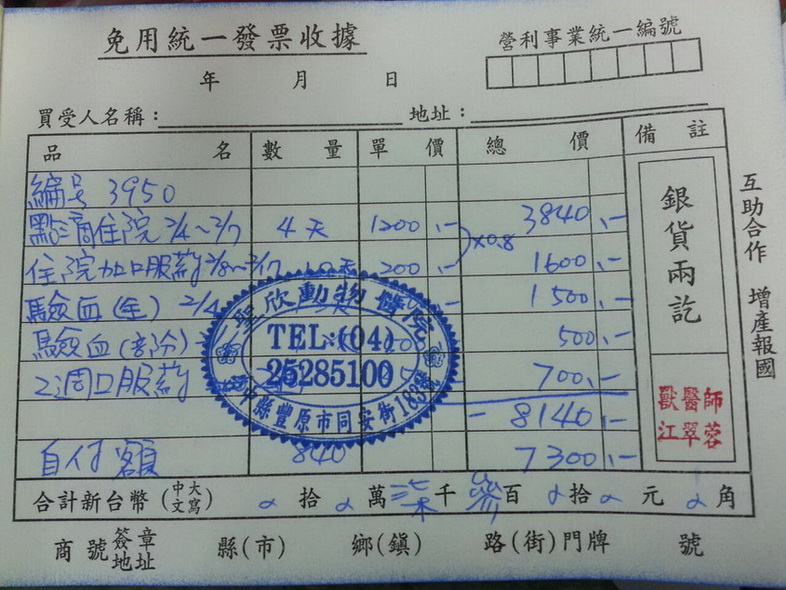 免用統一發票收據
營利事業統一編號
年 月 日
買受人名稱： 地址：
品名 數量 單價 總價 備註
編号 3950
點滴住院 2/4~2/7 4天 1200.- 3840.-
×0.8
住院加口服藥 2/8~2/17 10天 200.- 1600.-
驗血(全) 2/4 1500.-
驗血(部份) 500.-
2週口服藥 700.-
- 8140.-
自付額 840 7300.-
銀貨兩訖
獸醫師
江翠蓉
聖欣動物醫院
TEL:(04)
25285100
中縣豐原市同安街183號
合計新台幣(中文大寫) 拾 萬 柒千 參百 拾 元 角
商號簽章地址 縣(市) 鄉(鎮) 路(街)門牌 號
互助合作 增產報國